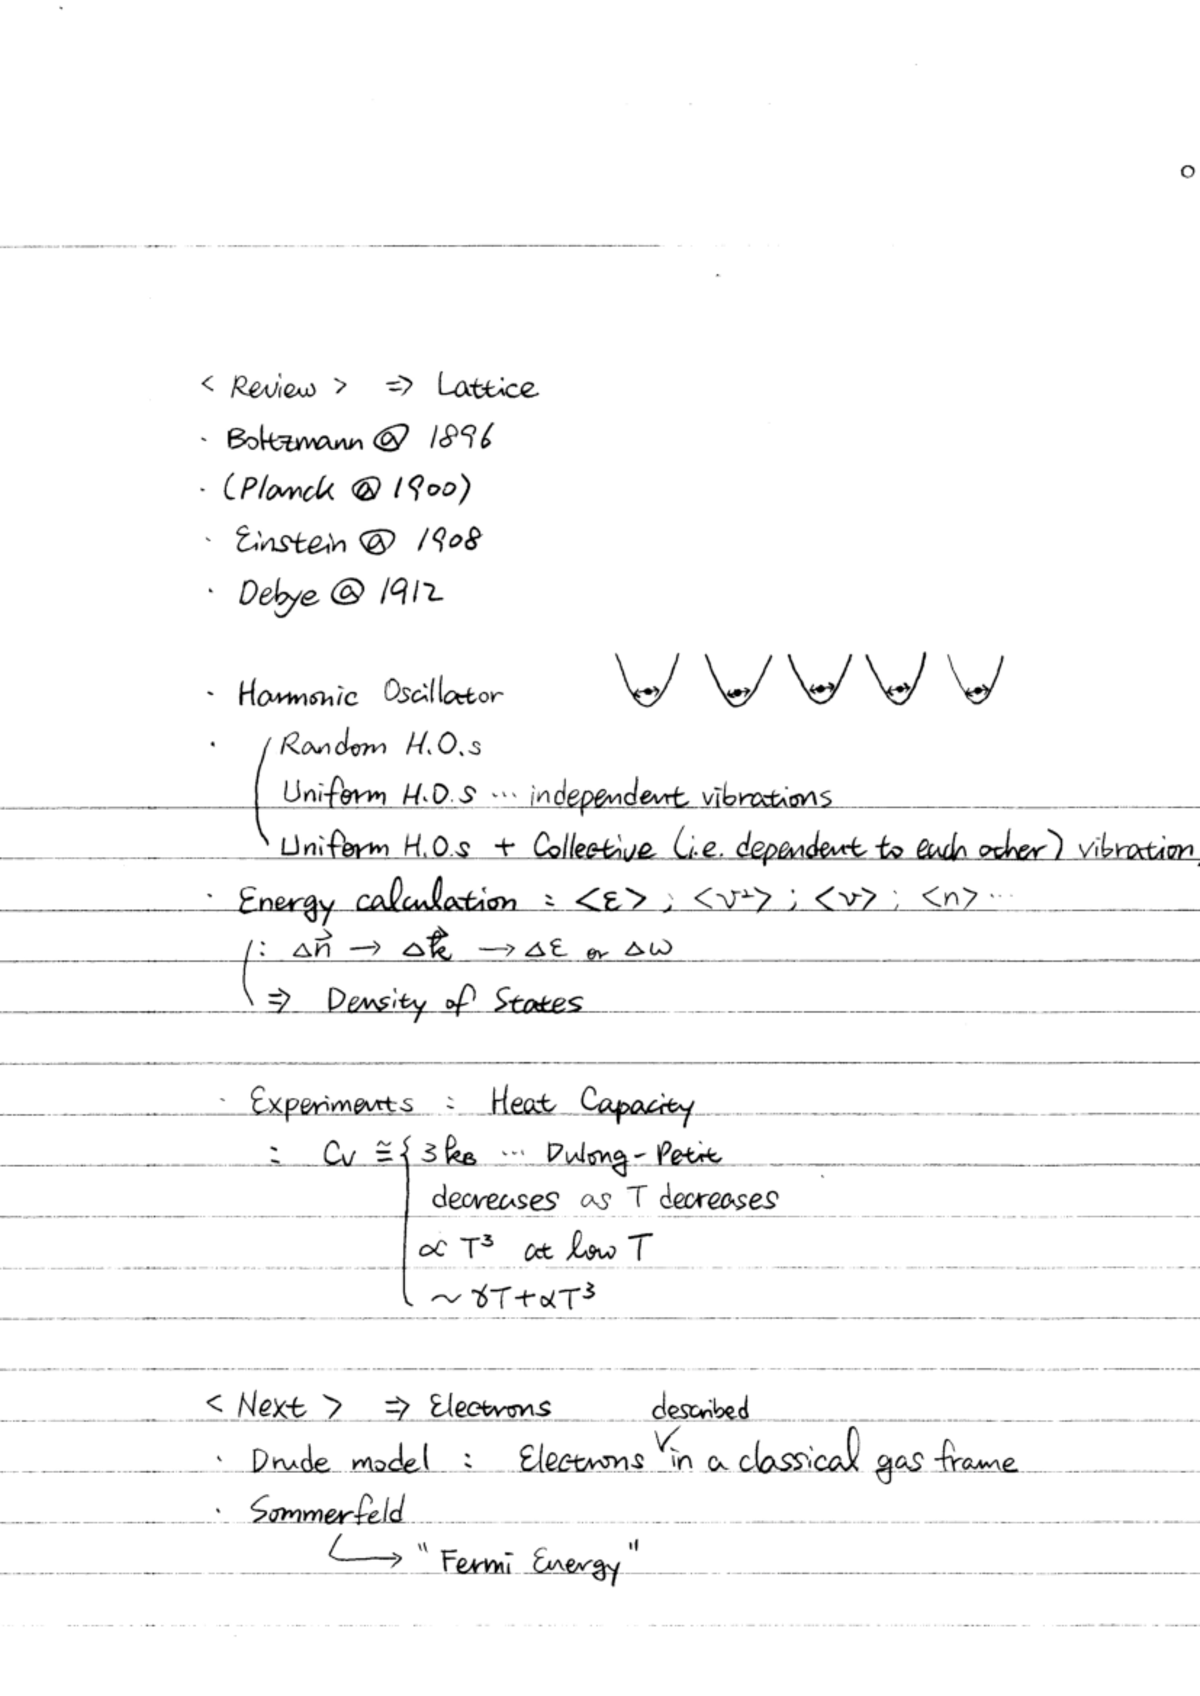 < Review > ⇒ Lattice
· Boltzmann @ 1896
· (Planck @ 1900)
· Einstein @ 1908
· Debye @ 1912
· Harmonic Oscillator
· Random H.O.s
Uniform H.O.s ··· independent vibrations
Uniform H.O.s + Collective (i.e. dependent to each other) vibration
· Energy calculation : <ε> ; <v²> ; <v> ; <n> ···
: Δn⃗ → Δk⃗ → Δε or Δω
⇒ Density of States
· Experiments : Heat Capacity
: Cv ≅ { 3kB ··· Dulong-Petit
decreases as T decreases
∝ T³ at low T
~ γT+αT³
< Next > ⇒ Electrons
· Drude model : Electrons described in a classical gas frame
· Sommerfeld
→ "Fermi Energy"